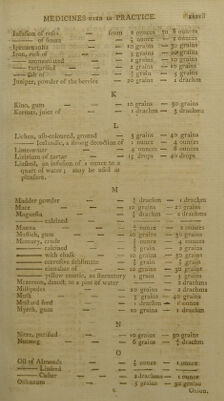 MEDICINES used in PRACTICE.
Infusion of roses — from 2 ounces to 8 ounces
— of senna — ounce
Ipecacuanha — 10 grains — 30 grains
Iron, rust of — 5 grains — 20 grains
— ammoniated — grains — 10 grains
— tartarised — 2 grains — 10 grains
— salt of — grain — 5 grains
Juniper, powder of the berries — 20 grains — 1 drachm
K
Kino, gum — 10 grains — 30 grains
Kermes, juice of — 1 drachm — 3 drachms
L
Lichen, ash-coloured, ground — 5 grains — 40 grains
— Icelandic, a strong decoction of — 1 ounce — 4 ounces
Limewater — 2 ounces — 8 ounces
Lixivium of tartar — 15 drops — 40 drops
Linseed, an infusion of 1 ounce to a
quart of water; may be used at
pleasure.
M
Madder powder — drachm — 1 drachm
Mace — 10 grains — 20 grains
Magnesia — drachm — 1 drachm
— calcined
Manna — ounce — 2 ounces
Mastich, gum — 10 grains — 30 grains
Mercury, crude — ounce — 4 ounces
— calcined — grain — 2 grains
— with chalk — 10 grains — 30 grains
— corrosive sublimate — grain — grain
— cinnabar of — 10 grains — 30 grains
— yellow emetic, as sternutatory — 1 grain — 5 grains
Mezereon, decoct. to a pint of water — 2 drachms
Millipedes — 20 grains — 2 drachms
Musk — 5 grains — 40 grains
Mustard seed — 1 drachm — ounce
Myrrh, gum — 10 grains — 1 drachm
N
Nitre, purified — 10 grains — 30 grains
Nutmeg — 6 grains — drachm
O
Oil of Almonds — ounce — 1 ounce
— Linseed
— Castor — 2 drachms — 1 ounce
Olibanum — 5 grains — 30 grains
Onion,